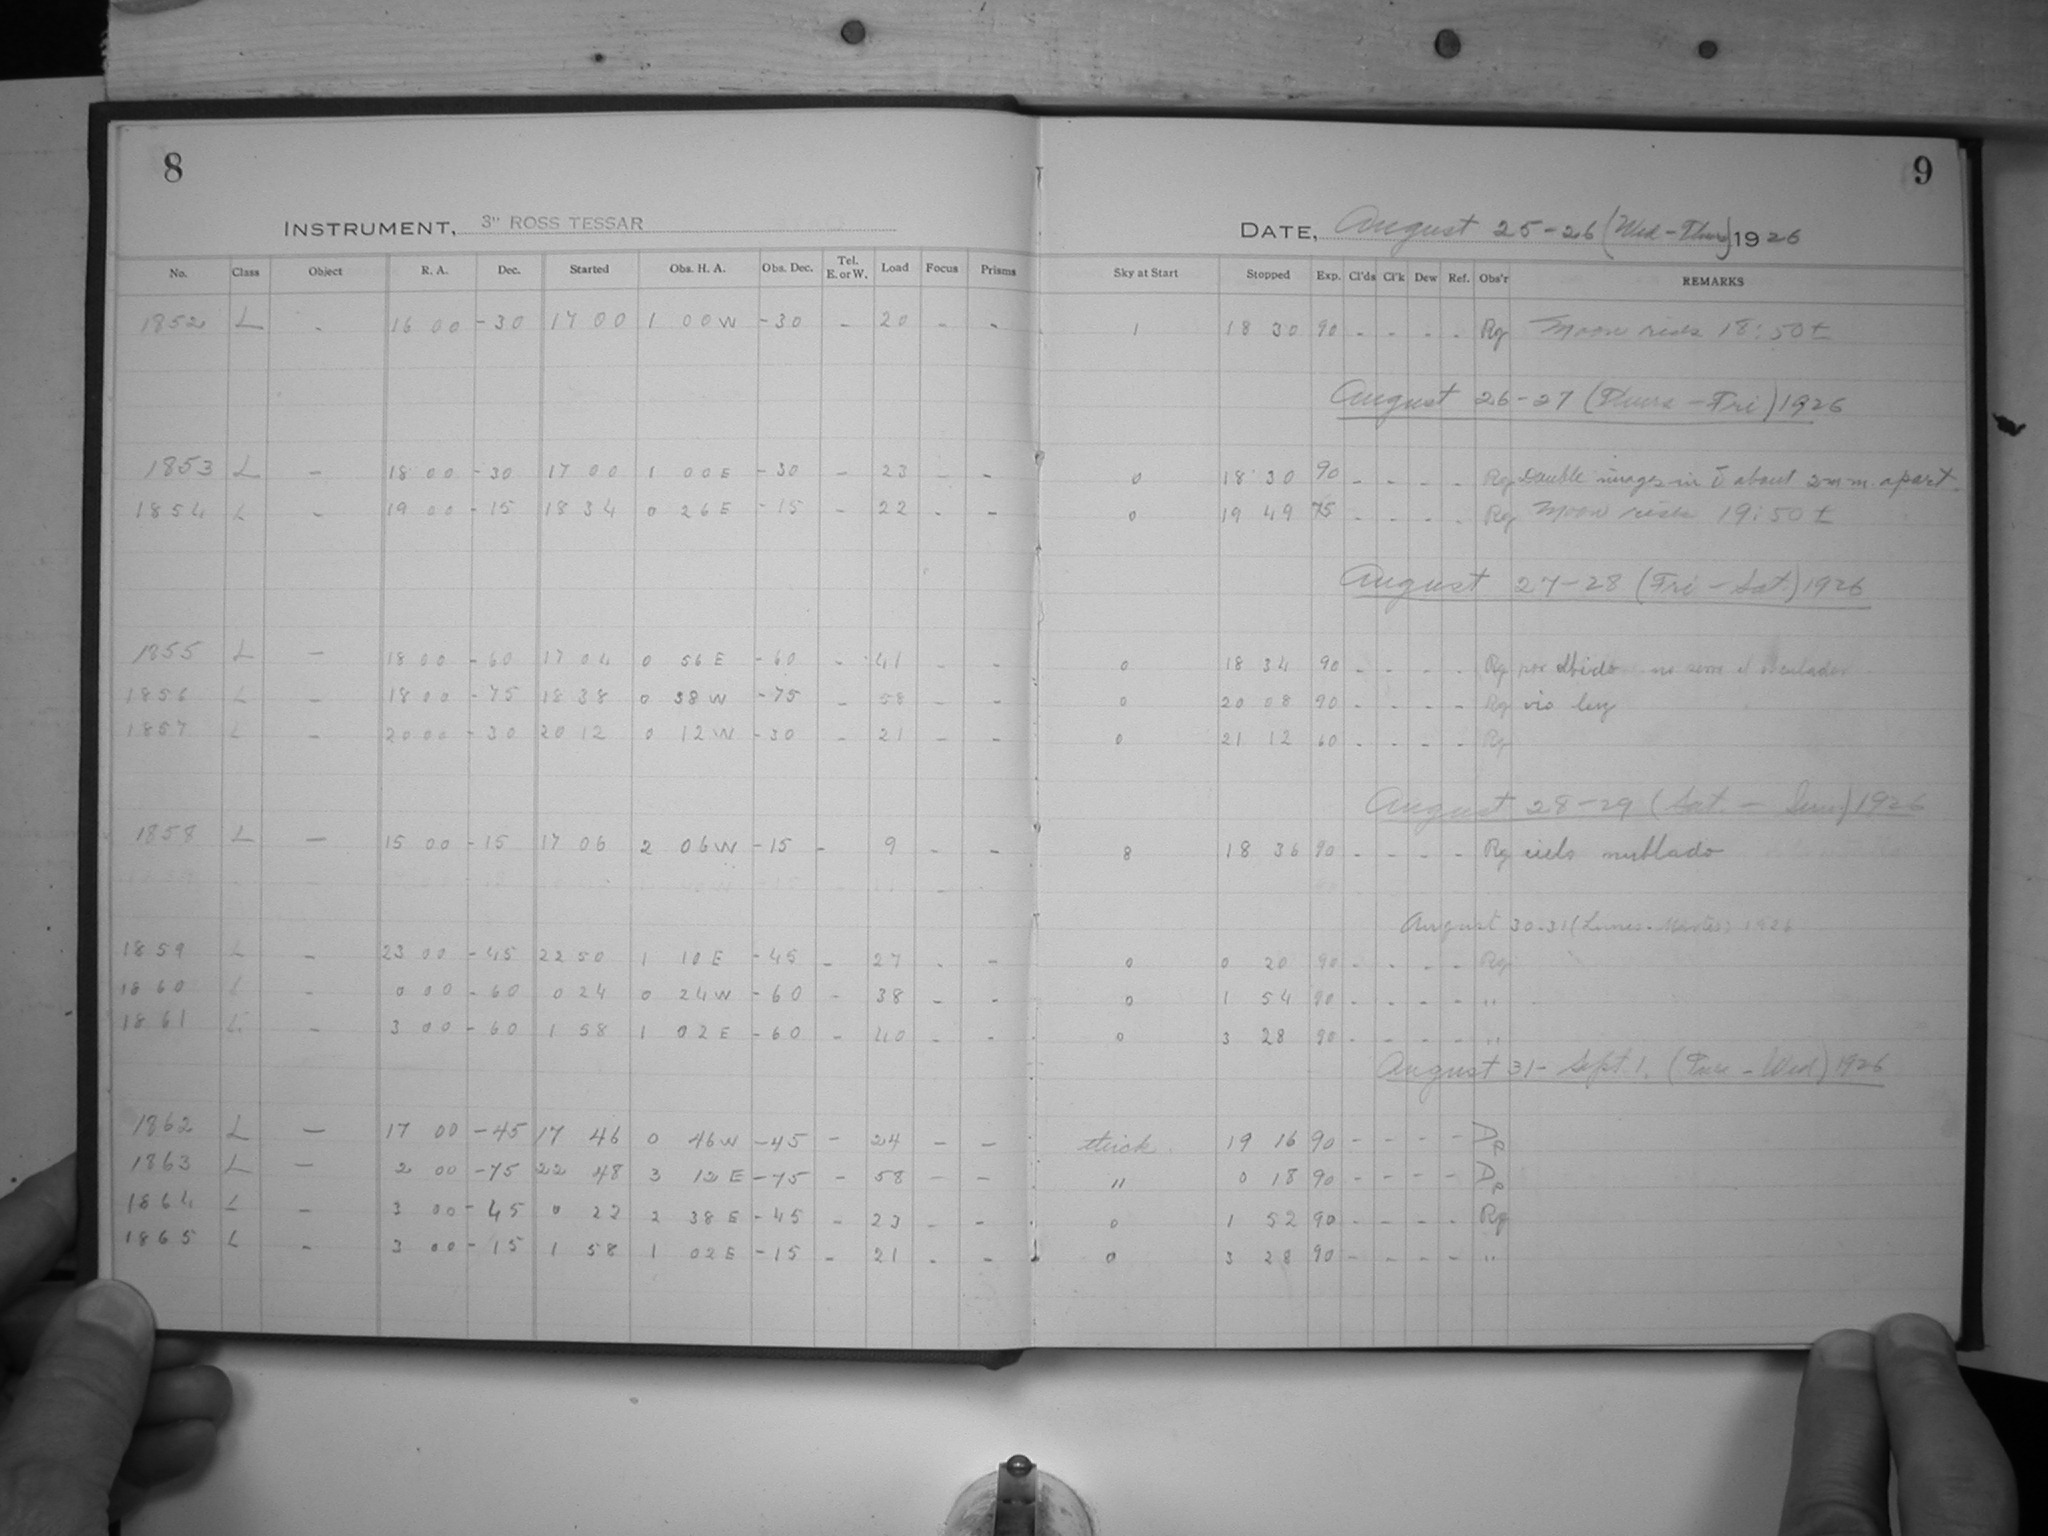 8
INSTRUMENT, 3" ROSS TESSAR
No. Class Object R. A. Dec. Started Obs. H. A. Obs. Dec. Tel. E. or W. Load Focus Prisms
9
DATE, August 25-26 (Wed-Thurs) 1926
Sky at Start Stopped Exp. Cl'ds Cl'k Dew Ref. Obs'r REMARKS
1852 L - 16 00 -30 17 00 1 00 W -30 - 20 - - 1 18 30 90 - - - - Rg Moon rises 18:50±
August 26-27 (Thurs-Fri) 1926
1853 L - 18 00 -30 17 00 1 00 E -30 - 23 - - 0 18 30 90 - - - - Rg Double images in about 2 mm apart.
1854 L - 19 00 -15 18 34 0 26 E -15 - 22 - - 0 19 49 75 - - - - Rg Moon rises 19:50±
August 27-28 (Fri-Sat.) 1926
1855 L - 18 00 -60 17 04 0 56 E -60 - 41 - - 0 18 34 90 - - - - Rg por no
1856 L - 18 00 -75 18 38 0 38 W -75 - 58 - - 0 20 08 90 - - - - Rg vio luz
1857 L - 20 00 -30 20 12 0 12 W -30 - 21 - - 0 21 12 60 - - - - Rg
August 28-29 (Sat. - Sun) 1926
1858 L - 15 00 -15 17 06 2 06 W -15 - 9 - - 8 18 36 90 - - - - Rg cielo nublado
August 30-31 (Lunes-Martes) 1926
1859 L - 23 00 -45 22 50 1 10 E -45 - 27 - - 0 0 20 90 - - - - Rg
1860 L - 0 00 -60 0 24 0 24 W -60 - 38 - - 0 1 54 90 - - - - "
1861 L - 3 00 -60 1 58 1 02 E -60 - 40 - - 0 3 28 90 - - - - "
August 31 - Sept. 1, (Tues - Wed) 1926
1862 L - 17 00 -45 17 46 0 46 W -45 - 24 - - thick. 19 16 90 - - - - Dp
1863 L - 2 00 -75 22 48 3 12 E -75 - 58 - - " 0 18 90 - - - - Dp
1864 L - 3 00 -45 0 22 2 38 E -45 - 23 - - 0 1 52 90 - - - - Rg
1865 L - 3 00 -15 1 58 1 02 E -15 - 21 - - 0 3 28 90 - - - - "